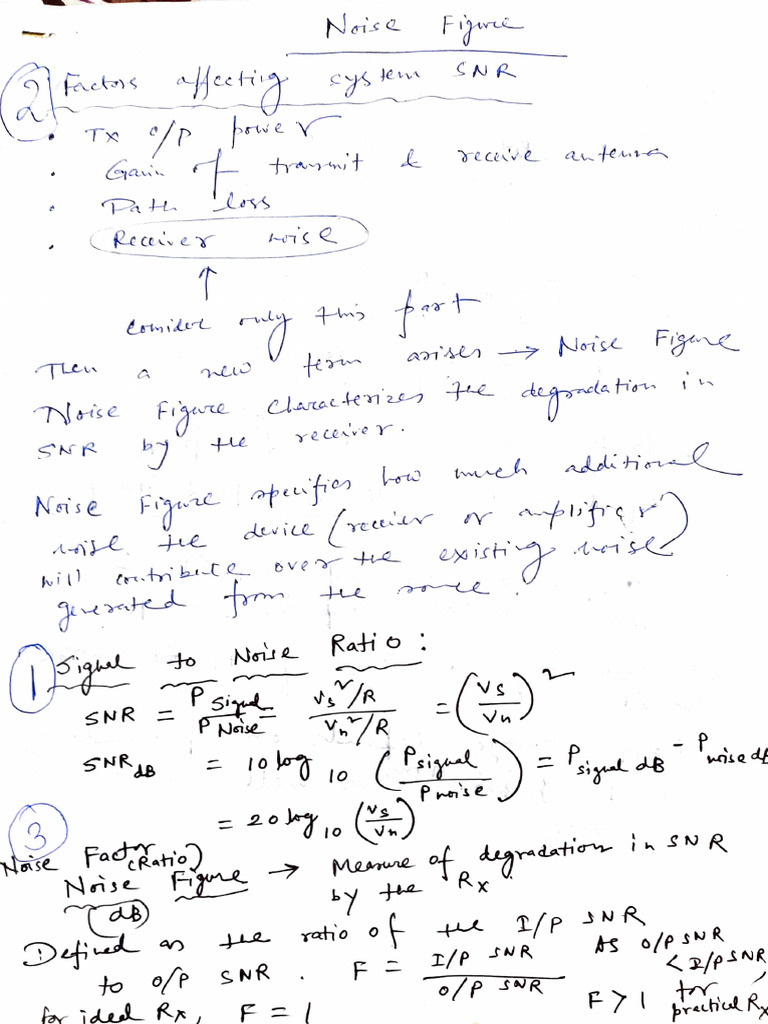 Noise Figure
2 Factors affecting system SNR
• Tx o/p power
• Gain of transmit & receive antenna
• Path loss
• Receiver noise
↑
Consider only this part
Then a new term arises → Noise Figure
Noise Figure characterizes the degradation in
SNR by the receiver.
Noise Figure specifies how much additional
noise the device (receier or amplifier)
will contribute over the existing noise
generated from the source.
1 Signal to Noise Ratio:
SNR = P Signal / P Noise = (Vs²/R) / (Vn²/R) = (Vs/Vn)²
SNR dB = 10 log 10 (P signal / P noise) = P signal dB - P noise dB
= 20 log 10 (Vs/Vn)
3
Noise Factor (Ratio)
Noise Figure → Measure of degradation in SNR
(dB) by the Rx.
Defined as the ratio of the I/P SNR
to O/P SNR. F = I/P SNR / O/P SNR
As O/P SNR
< I/P SNR,
for ideal Rx, F = 1
F > 1 for
practical Rx